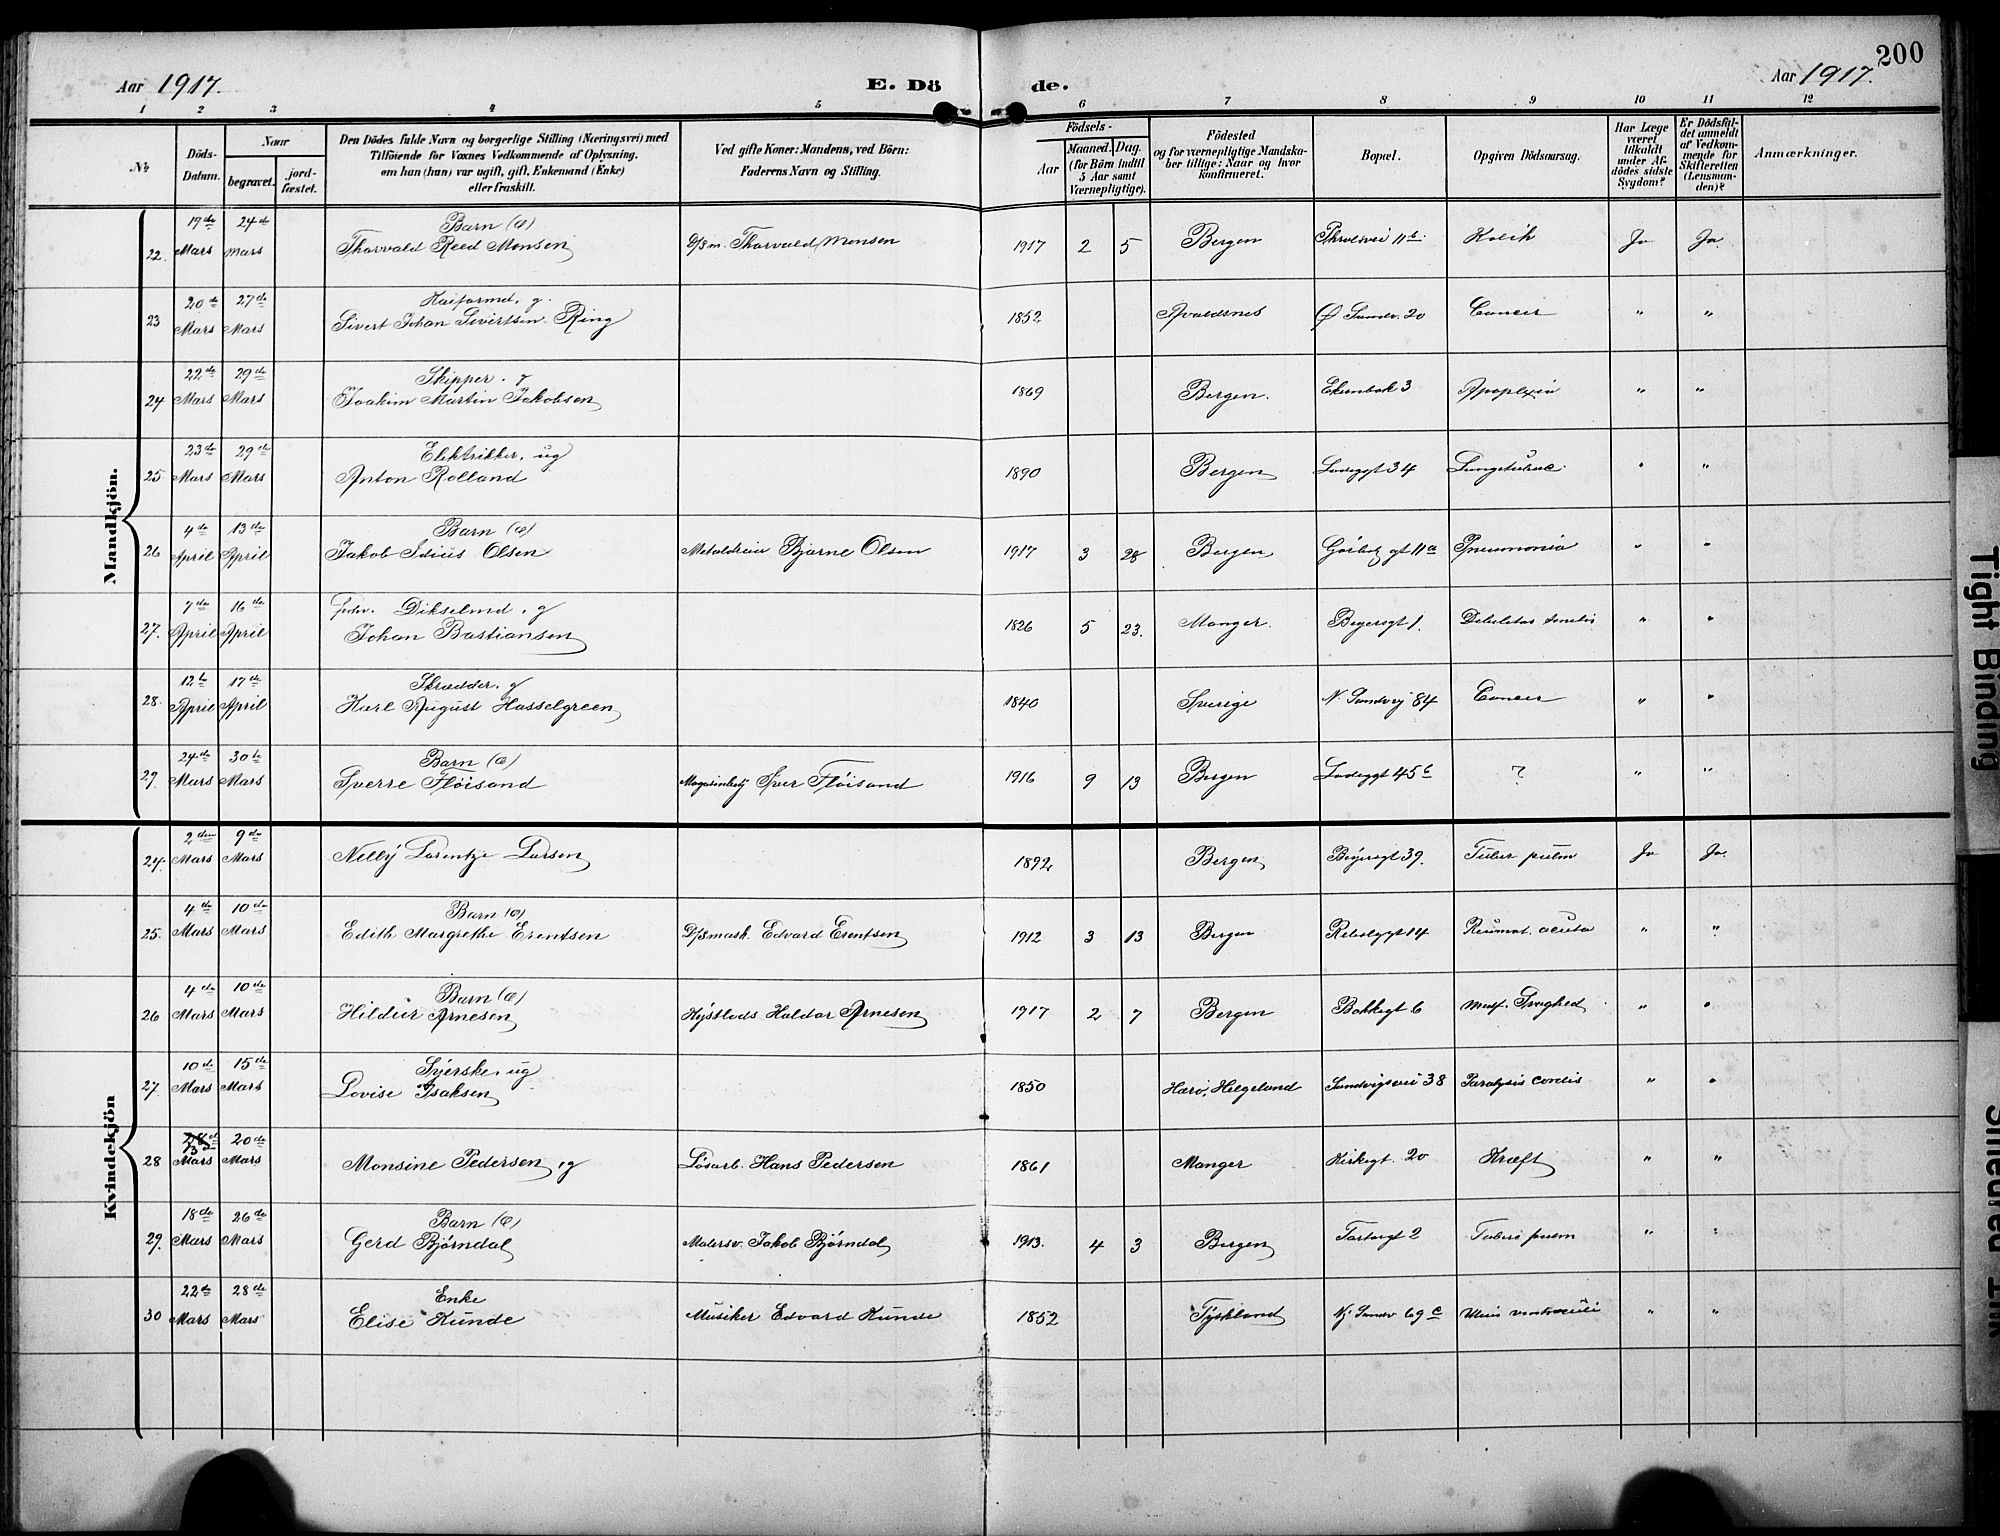 200
Aar 1917. E. Dö de. Aar 1917.
1 2 3 4 5 6 7 8 9 10 11 12
Nr.
Döds-Datum.
Naar
begravet.
jord-fæstet.
Den Dödes fulde Navn og borgerlige Stilling (Næringsvei) med
Tilföiende for Voxnes Vedkommende af Oplysning,
om han (hun) var ugift, gift, Enkemand (Enke)
eller fraskilt.
Ved gifte Koner: Mandens, ved Börn:
Faderens Navn og Stilling.
Födsels-
Aar
Maaned. Dag.
(for Börn indtil
5 Aar samt
Værnepligtige).
Födested
og for værnepligtige Mandska-
ber tillige: Naar og hvor
konfirmeret.
Bopæl.
Opgiven Dödsaarsag.
Har Læge
været
tilkaldt
under Af-
dödes sidste
Sygdom?
Er Dödsfal-
det anmeldt
af Vedkom-
mende for
Skifteretten
(Lensman-
den)?
Anmærkninger.
Mandkjön.
22. 19de Mars 24de Mars Barn (æ)
Thorvald Reed Monsen D/Sm. Thorvald Monsen 1917 2 5 Bergen 11b Kolik Ja Ja.
23 20de Mars 27de Mars Kaiformd, g.
Sivert Johan Sivertsen Ring 1852 Avaldsnes Ø Sandv. 20 Cancer " "
24 22de Mars 29de Mars Skipper. g
Joakim Martin Jakobsen 1869 Bergen. 3 Apoplexia " "
25 23de Mars 29de Mars Elektrikker, ug
Anton Rolland 1890 Bergen Ladeggt 34 Lungetuberc. " "
26 4de April 13de April Barn (æ)
Jakob Idius Olsen Bjarne Olsen 1917 3 28 Bergen gt 11a Pneumonia " "
27. 7de April 16de April Dikselmd, g
Johan Bastiansen 1826 5 23. Manger. Bøyersgt 1. Debilitas senilis " "
28. 12te April 17de April Skrædder, g
Karl August Hasselgreen 1840 Sverige N. Sandvj 84 Cancer " "
29. 24de Mars 30te Mars Barn (æ)
Sverre Fløisand Iver Fløisand 1916 9 13 Bergen Ladeggt 45b ? " "
Kvindekjön
24. 2den Mars 9de Mars Nelly Lorentze Larsen 1892 Bergen Bøyersgt 39. Tuber pulm Ja Ja.
25. 4de Mars 10de Mars Barn (æ)
Edith Margrethe Erentsen D/Smask. Edvard Erentsen 1912 3 13 Bergen 14 Reumat. acuta " "
26 4de Mars 10de Mars Barn (æ)
Hildur Arnesen Haldor Arnesen 1917 2 7 Bergen Bakkegt 6 Medf. Svaghed " "
27. 10de Mars 15de Mars Syerske, ug
Lovise Isaksen 1850 Herø, Helgeland Sandvigsvei 38 Paralysis cordis " "
28 13de Mars 20de Mars Monsine Pedersen, g Løsarb. Hans Pedersen 1861 Manger Kirkegt. 20 Kræft " "
29. 18de Mars 26de Mars Barn (æ)
Gerd Bjørndal Malersv. Jakob Bjørndal 1913. 4 3 Bergen 2 Tuberc pulm " "
30 22de Mars 28de Mars Enke
Elise Kunde Musiker Edvard Kunde 1852 Tyskland Nj Sandv 69c Ulcus ventriculi " "
Tight Binding
Smeared Ink